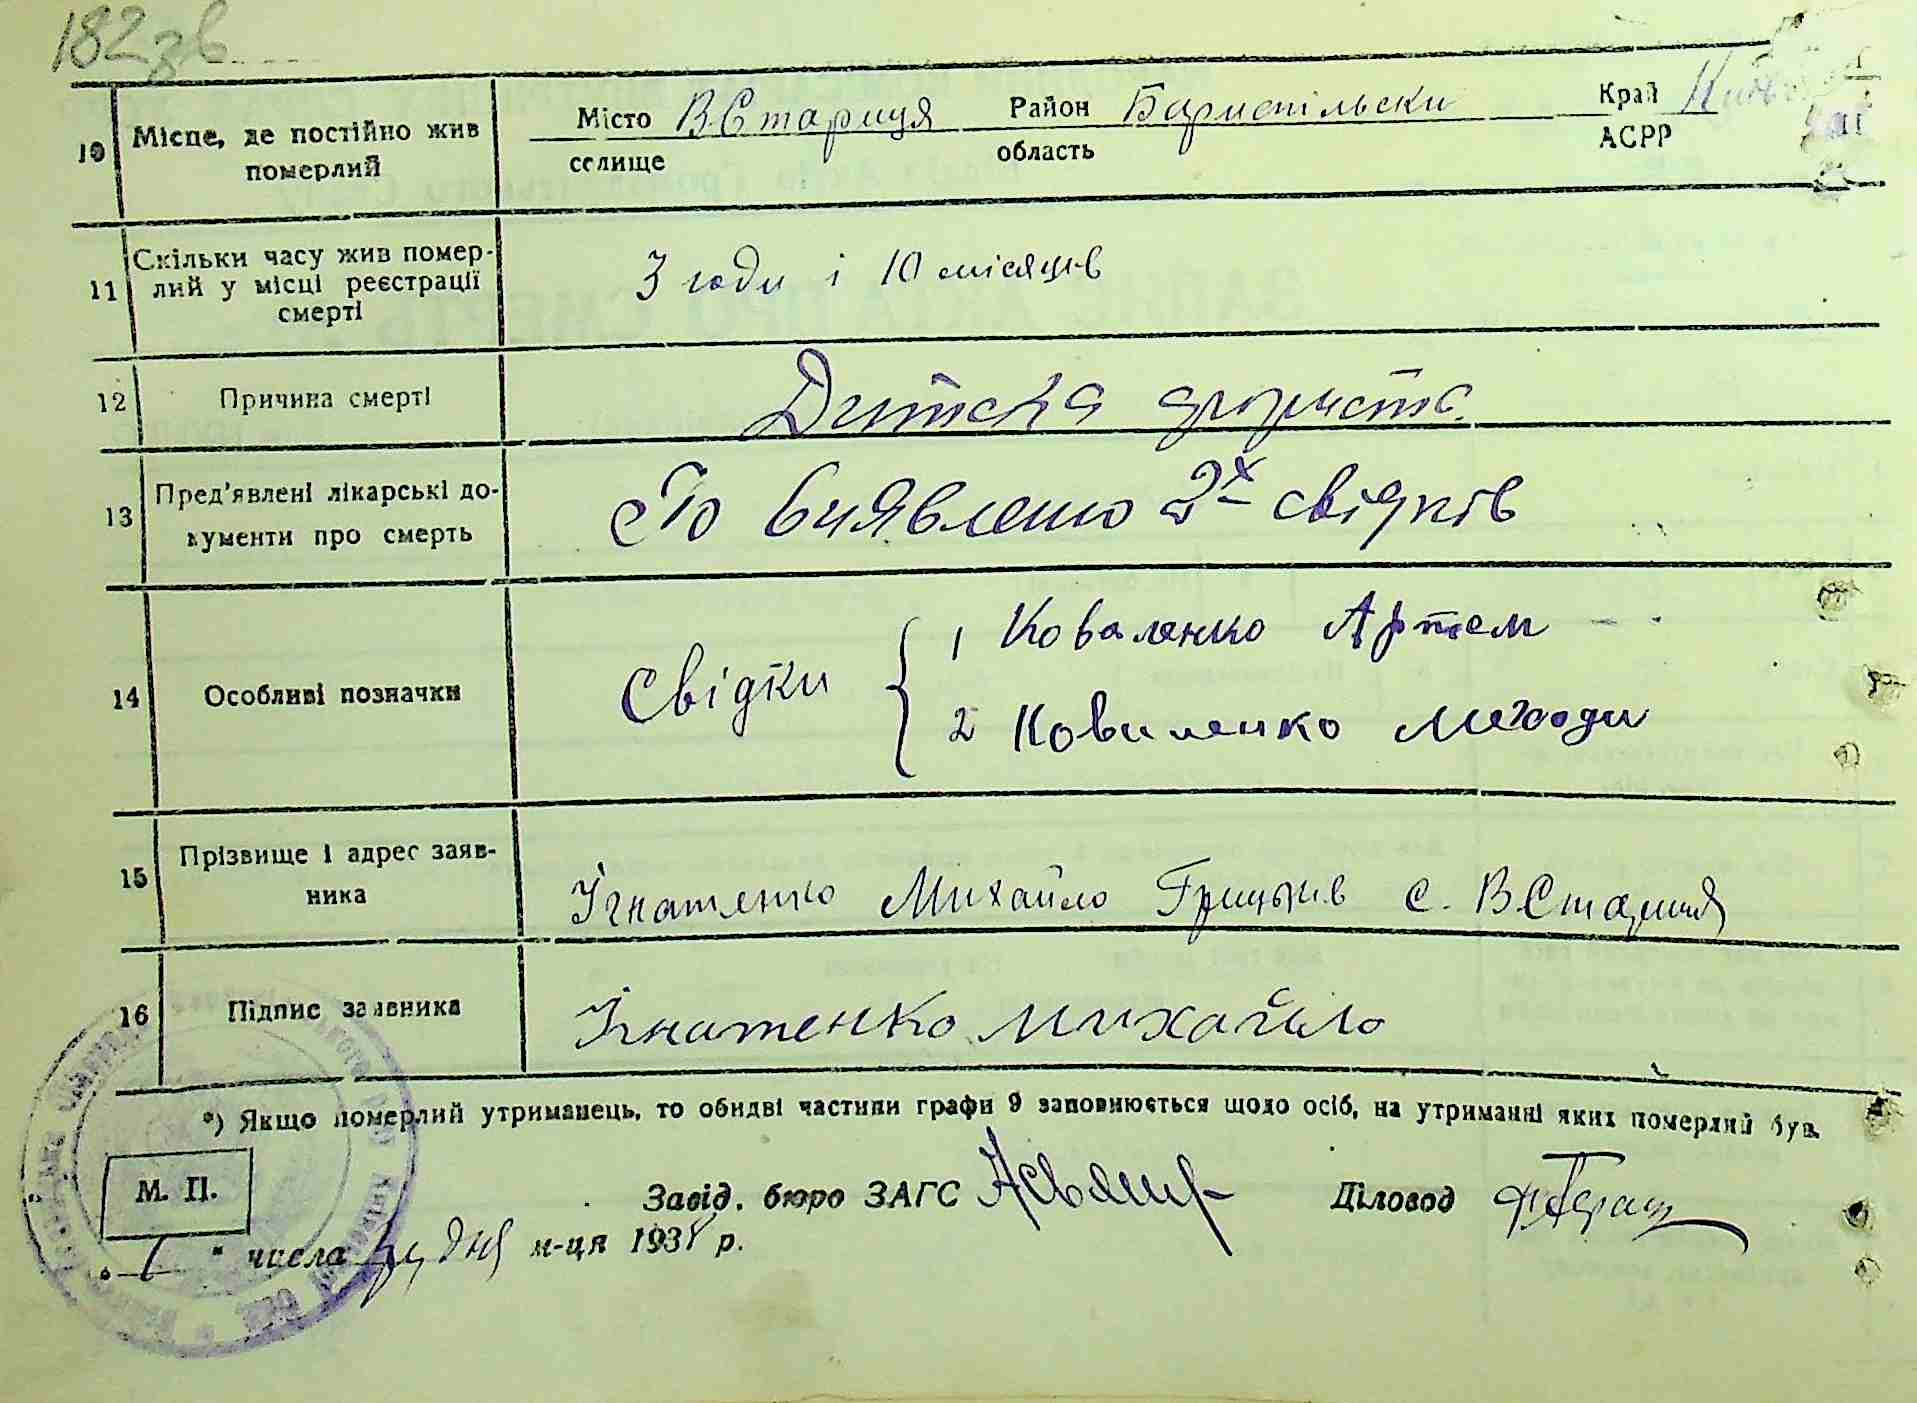 182 зв
10 Місце, де постійно жив померлий
Місто В Стариця Район Бариспільски Край
селище область АСРР
11 Скільки часу жив помер-
лий у місці реєстрації
смерті
3 годи і 10 місяців
12 Причина смерті
Дитска
13 Пред'явлені лікарські до-
кументи про смерть
По виявлено 2х свідків
14 Особливі позначки
Свідки
1 Коваленко Артем
2 Коваленко Меходи
15 Прізвище і адрес заяв-
ника
Ігнатенко Михайло Грицьків с. В Стариця
16 Підпис заявника
Ігнатенко Михайло
*) Якщо померлий утриманець, то обидві частини графи 9 заповнюється щодо осіб, на утриманні яких померлий був.
М. П.
Завід. бюро ЗАГС Діловод
" 1 " числа грудня м-ця 1938 р.